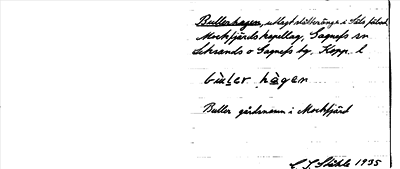 Bullerhagen, utlagt slåtteränge i Säls fäbod
Mockfjärds kapellag, Gagnefs sn
Leksands o Gagnefs tg, Kopp. l
Buller gårdsnamn i Mockfjärd
C. I. Ståhle 1935